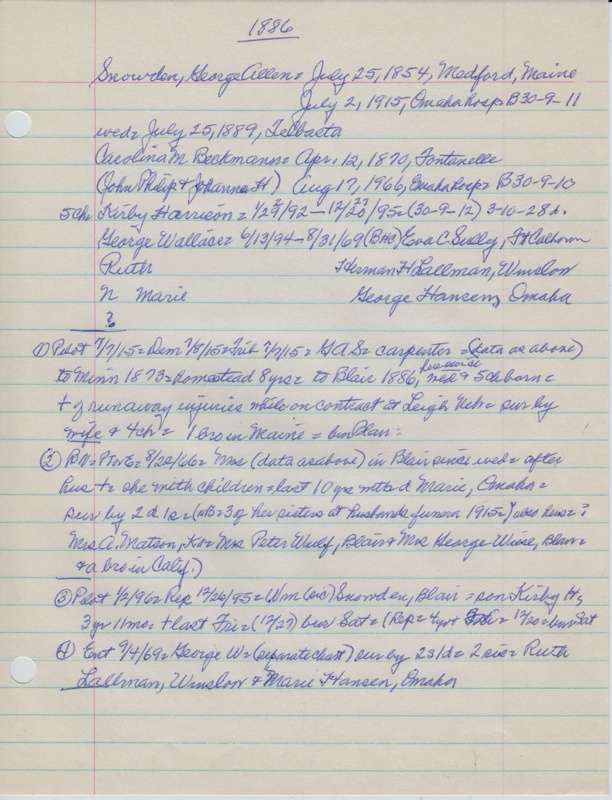 1886
Snowden, George Allen = July 25, 1854, Medford, Maine
July 2, 1915, Omaha Hosp = B30-9-11
wed = July 25, 1889, Telbasta
Carolina M. Beckmann = Apr. 12, 1870, Fontanelle
(John Philip & Johanna H) Aug 17, 1966, Omaha Hosp = B30-9-10
5 ch: Kirby Harrison = 1/29/92 — 12/20/95 = (30-9-12) 3-10-28 d.
George Wallace = 6/13/94 - 8/31/69 (BHC) Eva C. Scully, Ft Calhoun
Ruth Herman H Lallman, Winslow
N Marie George Hansen, Omaha
?
① Pilot 7/7/15 = Dem 7/8/15 = Trib 7/7/15 = GAS = carpenter = (data as above)
to Minn 1873 = homestead 8 yrs = to Blair 1886, wed & 5 ch born =
+ of runaway injuries while on contract at Leigh Neb = sur by
wife & 4 ch = 1 bro in Maine = bur Blair =
② = 8/22/66 = Mrs (data as above) in Blair since wed = after
hus + = she with children = last 10 yrs with d Marie, Omaha =
sur by 2 d 1 s = (NB = 3 of her sisters at husbands funeral 1915 =
Mrs A. Matson, Mrs Peter Wulf, Blair & Mrs George Wiese, Blair =
& a bro in Calif.)
③ Pilot 1/2/96 = Rep 12/26/95 = Wm (sic) Snowden, Blair = son Kirby H,
3 yr 11 mo = + last Fri = (12/27) bur Sat = (Rep = = 12/20 = bur Sat
④ Ent 9/4/69 = George W = (separate chart) sur by 2 s 1 d = 2 sis = Ruth
Lallman, Winslow & Marie Hansen, Omaha